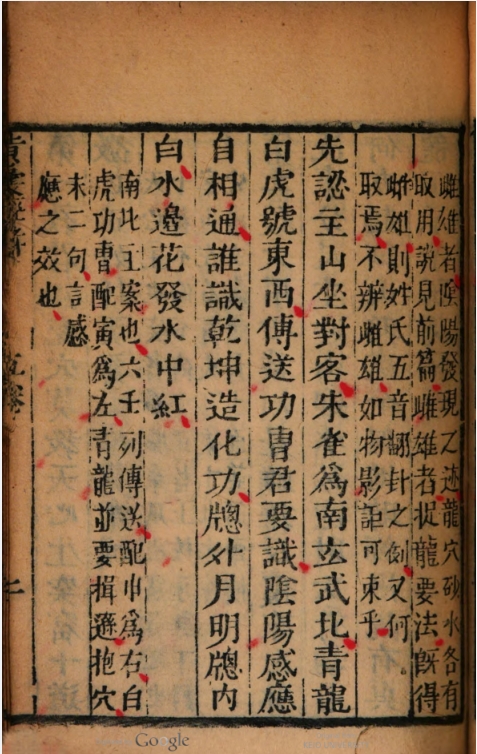 雌雄者陰陽發現之迹龍穴砂水各有
取用說見前篇雌雄者捉龍要法旣得
雌雄則姓氏五音翻卦之例又何
取焉不辨雌雄如物影詎可東乎
先認主山坐對客朱雀爲南玄武北青龍
白虎號東西傳送功曹君要識陰陽感應
自相通誰識乾坤造化功牕外月明牕內
白水邊花發水中紅
南北主案也六壬列傳送配申爲右白
虎功曹配寅爲左青龍並要揖遜抱穴
末二句言感
應之效也
Google